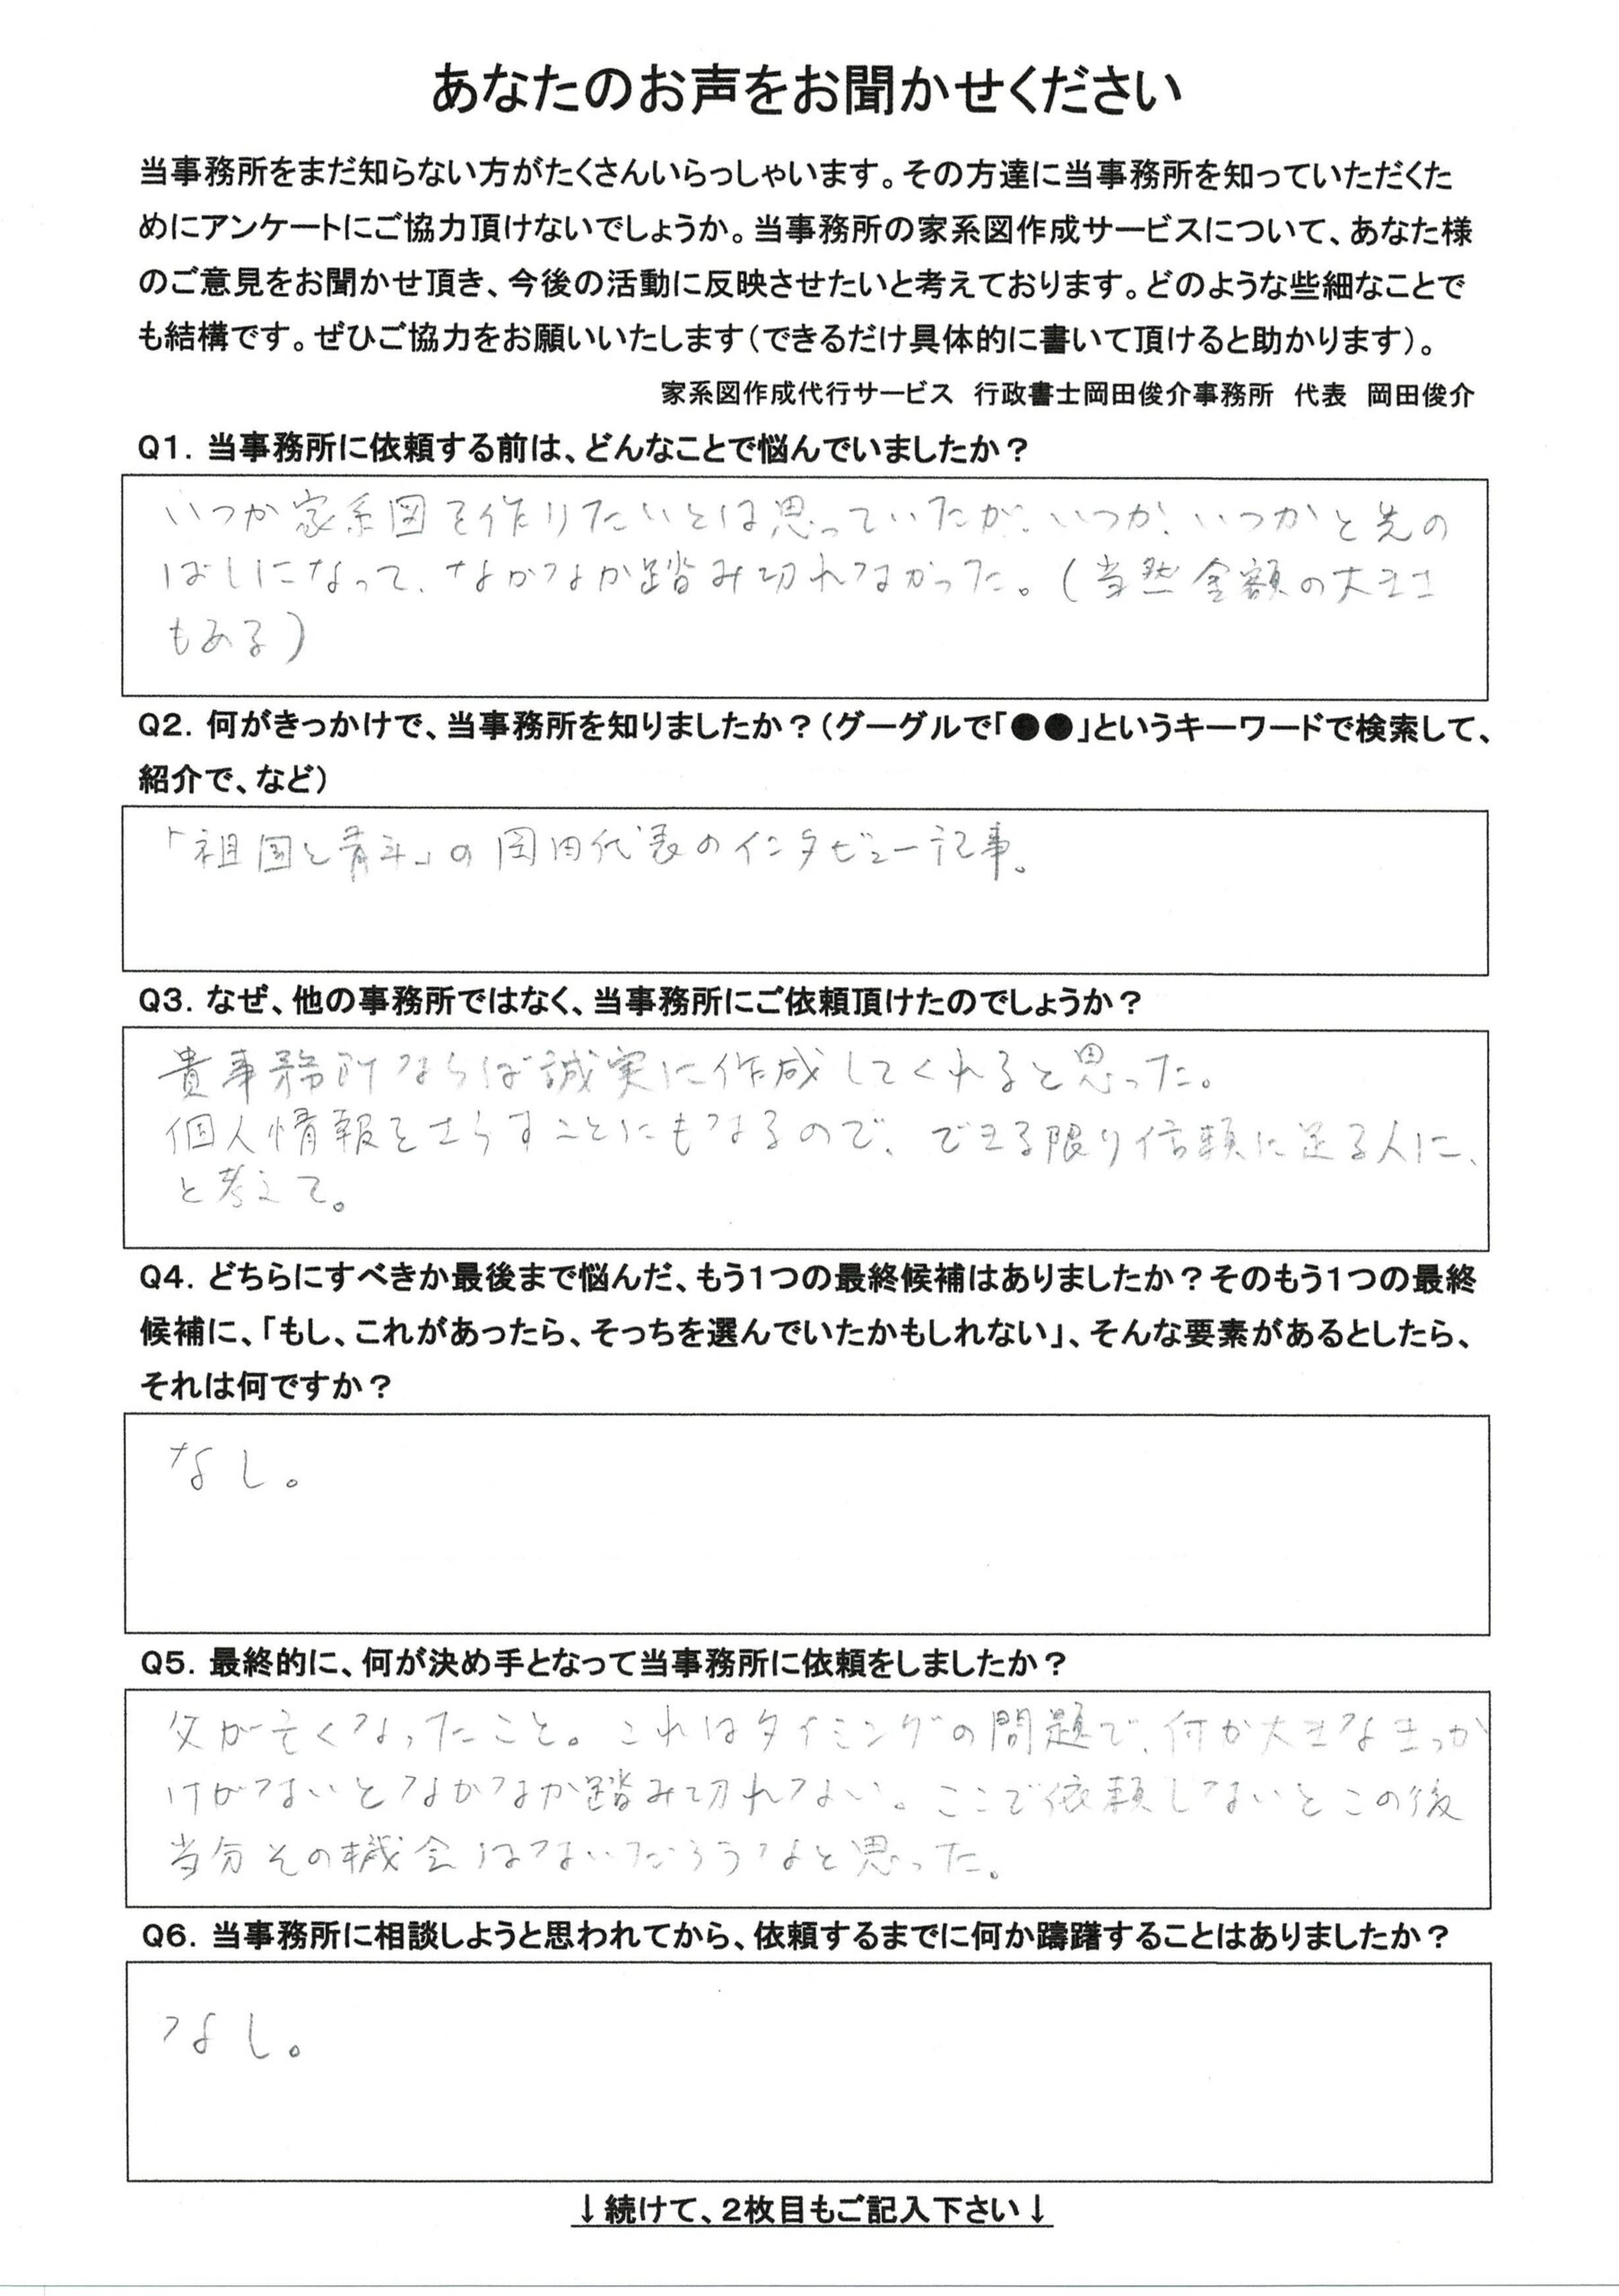 あなたのお声をお聞かせください
当事務所をまだ知らない方がたくさんいらっしゃいます。その方達に当事務所を知っていただくた
めにアンケートにご協力頂けないでしょうか。当事務所の家系図作成サービスについて、あなた様
のご意見をお聞かせ頂き、今後の活動に反映させたいと考えております。どのような些細なことで
も結構です。ぜひご協力をお願いいたします（できるだけ具体的に書いて頂けると助かります）。
家系図作成代行サービス　行政書士岡田俊介事務所　代表　岡田俊介
Q1. 当事務所に依頼する前は、どんなことで悩んでいましたか？
いつか家系図を作りたいとは思っていたが、いつか、いつかと先の
ばしになって、なかなか踏み切れなかった。（当然金額の大きさ
もある）
Q2. 何がきっかけで、当事務所を知りましたか？（グーグルで「●●」というキーワードで検索して、
紹介で、など）
「祖国と青年」の岡田代表のインタビュー記事。
Q3. なぜ、他の事務所ではなく、当事務所にご依頼頂けたのでしょうか？
貴事務所ならば誠実に作成してくれると思った。
個人情報をさらすことにもなるので、できる限り信頼に足る人に、
と考えて。
Q4. どちらにすべきか最後まで悩んだ、もう1つの最終候補はありましたか？そのもう1つの最終
候補に、「もし、これがあったら、そっちを選んでいたかもしれない」、そんな要素があるとしたら、
それは何ですか？
なし。
Q5. 最終的に、何が決め手となって当事務所に依頼をしましたか？
父が亡くなったこと。これはタイミングの問題で、何か大きなきっか
けがないとなかなか踏み切れない。ここで依頼しないとこの後
当分その機会はないだろうなと思った。
Q6. 当事務所に相談しようと思われてから、依頼するまでに何か躊躇することはありましたか？
なし。
↓続けて、2枚目もご記入下さい↓